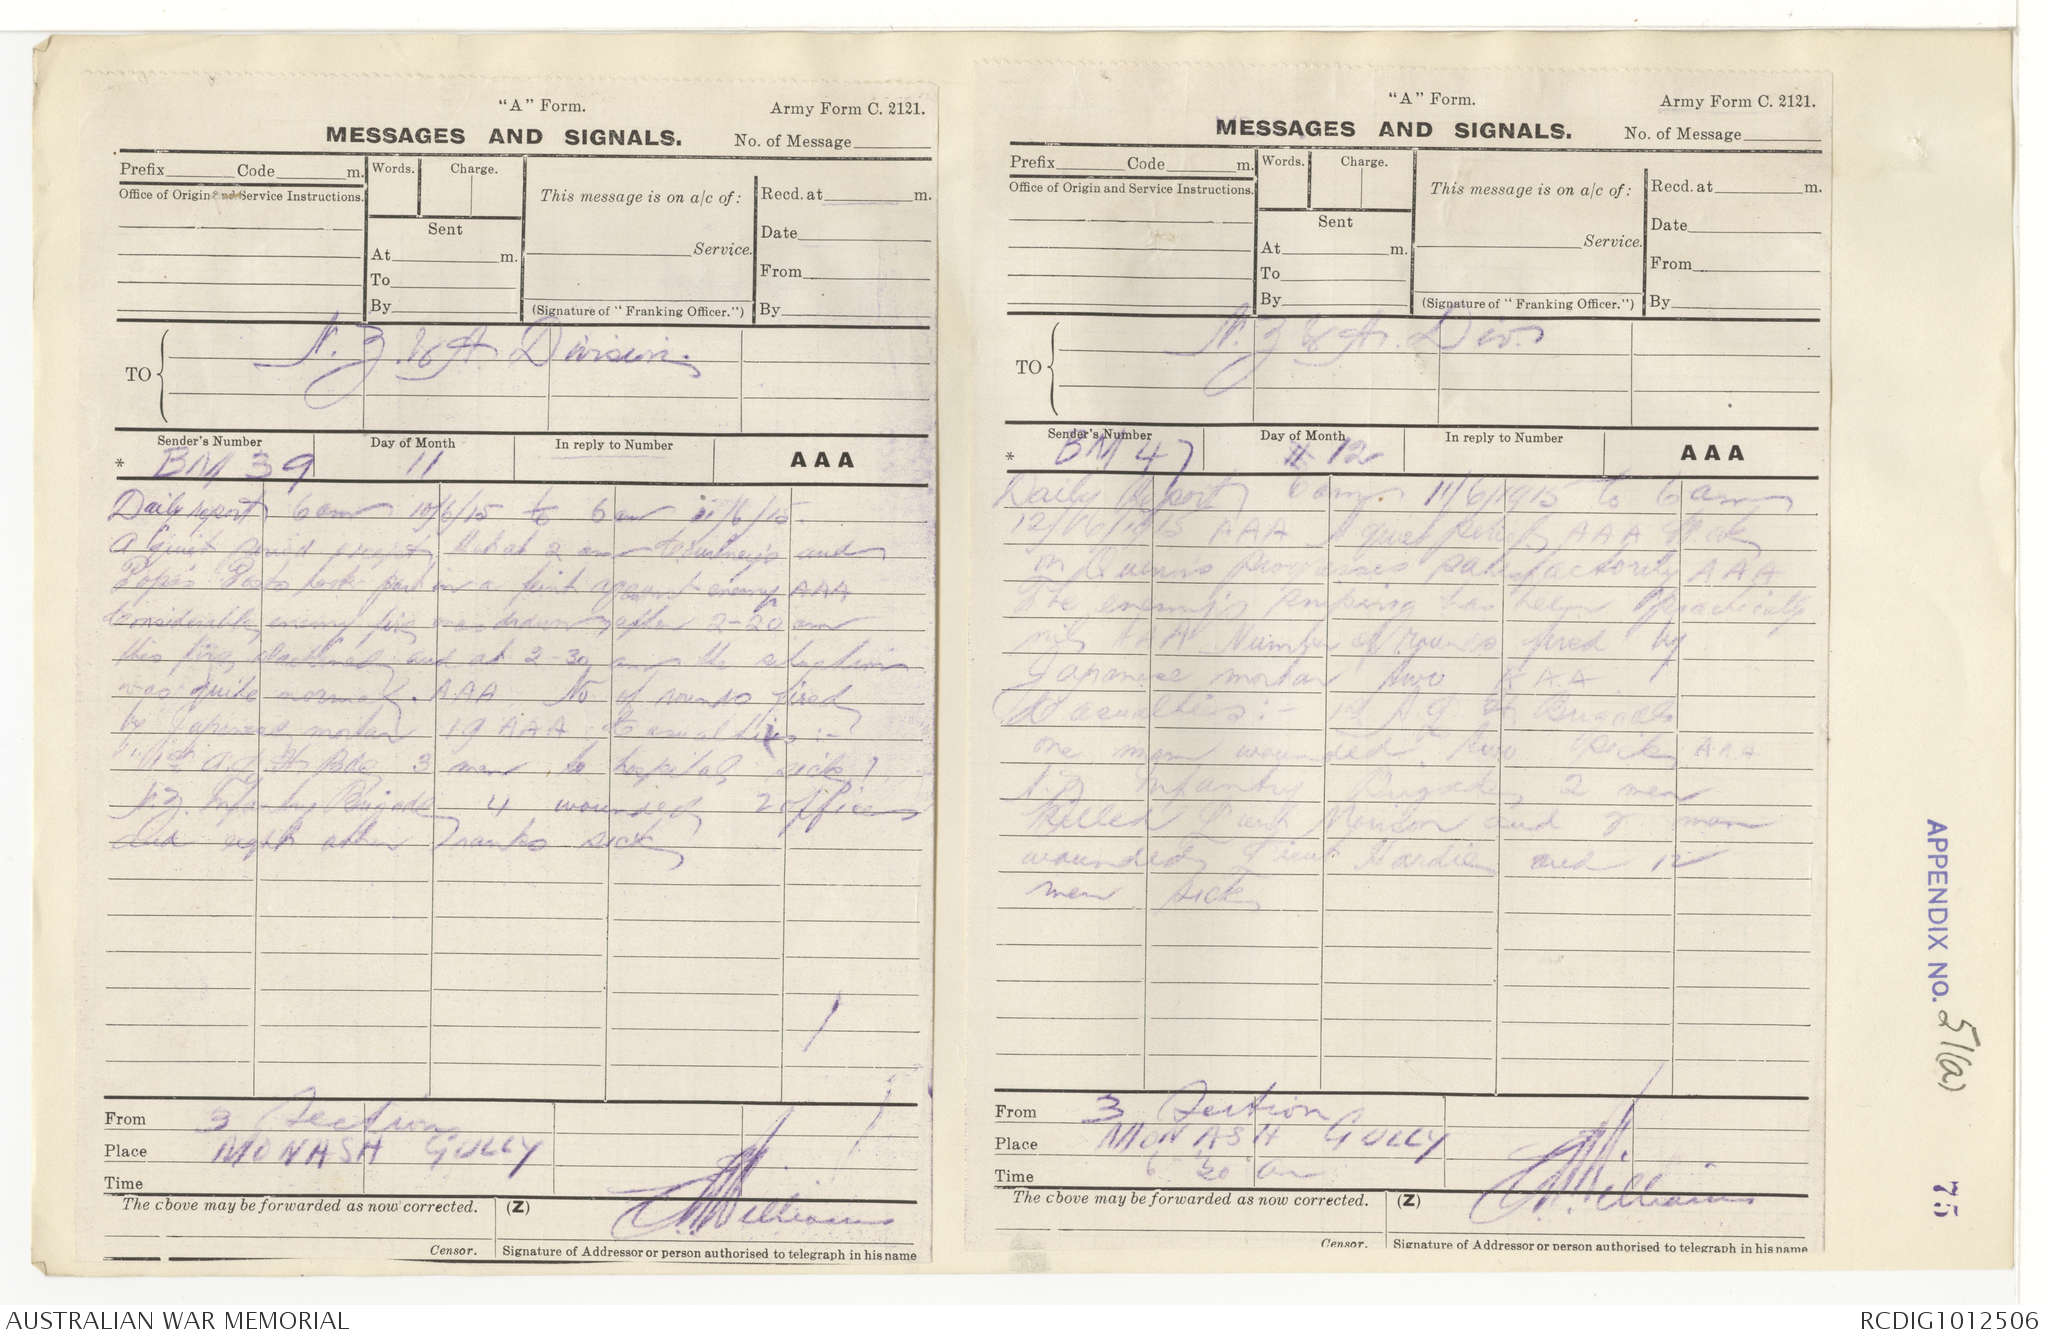 "A" Form.
Army Form C. 2121.
MESSAGES AND SIGNALS.
No. of Message
Prefix Code m.
Words. Charge.
This message is on a/c of:
Recd. at m.
Office of Origin and Service Instructions.
Sent
Date
At m.
Service.
To
From
By
(Signature of "Franking Officer.")
By
TO
N.Z. & A. Division.
Sender's Number
Day of Month
In reply to Number
AAA
* BM 39 11
Daily report 6 am 10/6/15 to 6 am 11/6/15.
A quiet period except that at 2 am Courtney's and
Pope's Posts took part in a feint against enemy AAA
Considerable enemy fire was drawn after 2-20 am
this fire slackened and at 2-30 am the situation
was quite normal. AAA No of rounds fired
by Japanese mortar 19 AAA Casualties :-
1st A.L.H. Bde 3 men to hospital sick
N.Z. Infantry Brigade 4 wounded 2 officers
and eight other ranks sick
From 3 Section
Place MONASH GULLY
Time
The above may be forwarded as now corrected. (Z)
Williams
Censor. Signature of Addressor or person authorised to telegraph in his name
"A" Form.
Army Form C. 2121.
MESSAGES AND SIGNALS.
No. of Message
Prefix Code m.
Words. Charge.
This message is on a/c of:
Recd. at m.
Office of Origin and Service Instructions.
Sent
Date
At m.
Service.
To
From
By
(Signature of "Franking Officer.")
By
TO
N.Z & A. Div.
Sender's Number
Day of Month
In reply to Number
AAA
* BM 47 11 12
Daily Report 6 am. 11/6/1915 to 6 am
12/06/1915 AAA A quiet period AAA Work
in Quinn's progresses satisfactorily AAA
The enemy's sniping has been practically
nil AAA Number of rounds fired by
Japanese mortar two AAA
Casualties :- 1st A L H Brigade
one man wounded two sick AAA
N.Z Infantry Brigade 2 men
killed Lieut Morison and 7 men
wounded Lieut Hardie and 12
men sick
From 3 Section
Place MONASH GULLY
Time 6 30 am
The above may be forwarded as now corrected. (Z)
Williams
Censor. Signature of Addressor or person authorised to telegraph in his name
APPENDIX NO. 51(a)
75
AUSTRALIAN WAR MEMORIAL
RCDIG1012506